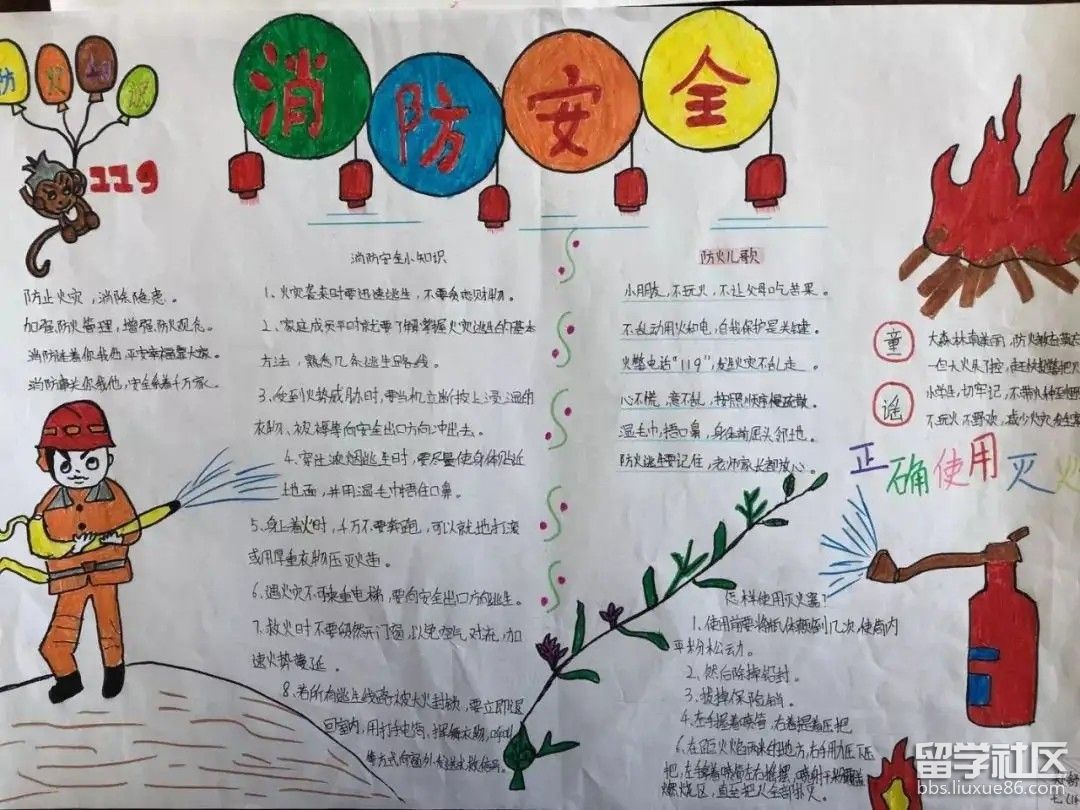 消防安全
防火
119
防止火灾，消除隐患。
加强防火管理，增强防火观念。
消防连着你我他 平安幸福靠大家。
消防牵头你我他，安全系着千万家。
消防安全小知识
1、火灾袭来时要迅速逃生，不要贪恋财物。
2、家庭成员平时就要了解掌握火灾逃生的基本
方法，熟悉几条逃生路线。
3、受到火势威胁时，要当机立断披上浸湿的
衣物、被褥等向安全出口方向冲出去。
4、穿过浓烟逃生时，要尽量使身体贴近
地面，并用湿毛巾捂住口鼻。
5、身上着火时，千万不要奔跑，可以就地打滚
或用厚重衣物压灭火苗。
6、遇火灾不可乘坐电梯，要向安全出口方向逃生。
7、救火时不要贸然开门窗，以免空气对流，加
速火势蔓延。
8、若所有逃生线路被大火封锁，要立即退
回室内，用打手电筒、挥舞衣物、呼叫
等方式向窗外发送求救信号。
防火儿歌
小朋友，不玩火，不让父母吃苦果。
不乱动用火和电，自我保护是关键。
火警电话“119”，发生火灾不乱走。
心不慌，意不乱，按照顺序慢疏散。
湿毛巾，捂口鼻，身体前屈头邻地。
防火逃生要记住，老师家长都放心。
童谣
大森林，南美丽，防火
一旦火
小学生，切牢记，不带火种
不玩火 不野炊，减少火灾
正确使用灭火
怎样使用灭火器？
1、使用前要将瓶体颠倒几次，使筒内
干粉松动。
2、然后除掉铅封。
3、拔掉保险销。
4、左手握着喷管，右手提着压把
6、在距火焰两米的地方，右手用力压下压
把，左手拿着喷管左右摇摆，喷射干粉覆盖
燃烧区，直至把火全部扑灭。
留学社区
bbs.liuxue86.com